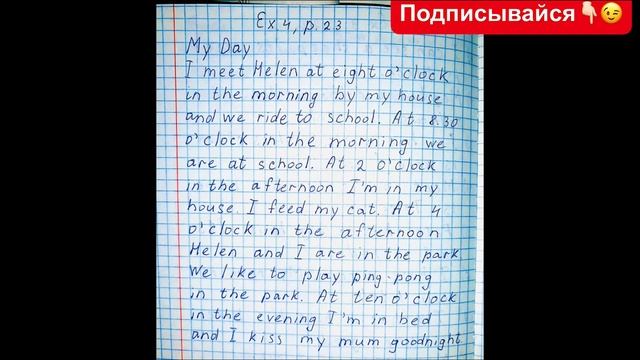 Подписывайся
Ex 4, p. 23
My Day
I meet Helen at eight o'clock
in the morning by my house
and we ride to school. At 8.30
o'clock in the morning we
are at school. At 2 o'clock
in the afternoon I'm in my
house. I feed my cat. At 4
o'clock in the afternoon
Helen and I are in the park
We like to play ping-pong
in the park. At ten o'clock
in the evening I'm in bed
and I kiss my mum goodnight.